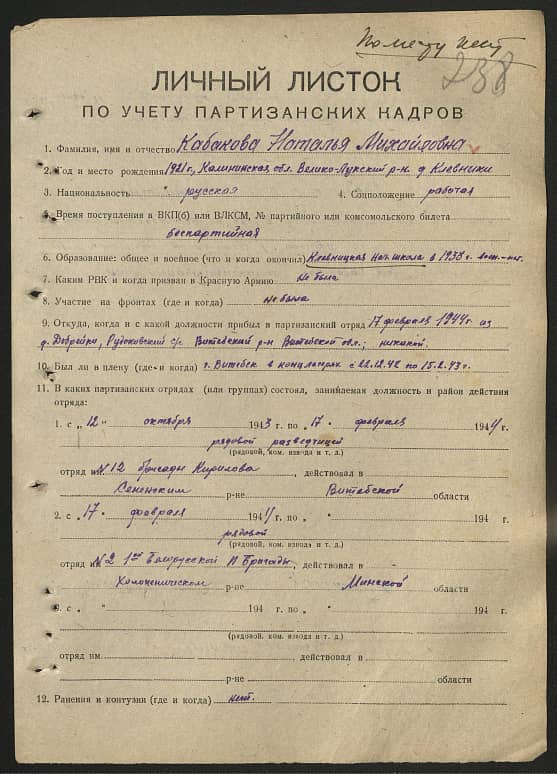 Помету нет
238
ЛИЧНЫЙ ЛИСТОК
ПО УЧЕТУ ПАРТИЗАНСКИХ КАДРОВ
1. Фамилия, имя и отчество Кабакова Наталья Михайловна
2. Год и место рождения 1921 г., Калининская обл. Велико-Лукский р-н. д. Клевники
3. Национальность русская 4. Соцположение рабочая
5. Время поступления в ВКП(б) или ВЛКСМ, № партийного или комсомольского билета
беспартийная
6. Образование: общее и военное (что и когда окончил) Клевницкая нач. школа в 1938 г.
7. Каким РВК и когда призван в Красную Армию не была
8. Участие на фронтах (где и когда) не была
9. Откуда, когда и с какой должности прибыл в партизанский отряд 17 февраля 1944 г. из
д. Добрейка, Рудоковский с/с Витебский р-н Витебской обл.; никакой.
10. Был ли в плену (где и когда) г. Витебск в концлагерях с 22.12.42 по 15.2.43 г.
11. В каких партизанских отрядах (или группах) состоял, занимаемая должность и район действия
отряда:
1. с „12" октября 1943 г. по „17" февраля 1944 г.
рядовой разведчицей
(рядовой, ком. взвода и т. д.)
отряд им. №12 бригады Кирилова, действовал в
Сененским р-не Витебской области
2. с „17" февраля 1944 г. по „ " 194 г.
рядовой
(рядовой, ком. взвода и т. д.)
отряд им. №2 1ой Белорусской П Бригады, действовал в
Холопеничском р-не Минской области
3. с „ " 194 г. по „ " 194 г.
(рядовой, ком. взвода и т. д.)
отряд им. действовал в
р-не области
12. Ранения и контузии (где и когда) нет.